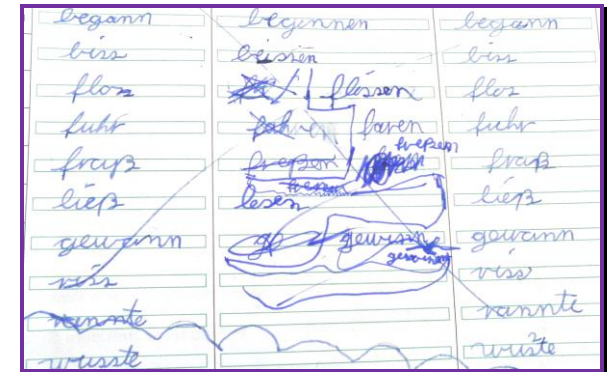 begann beginnen begann
biss beissen biss
floz flössen floz
fuhr fahren faren fuhr
fraß freßen freßen fraß
ließ lesen ließ
gewann gewinn gewann
riss riss
rannte rannte
wusste wuste